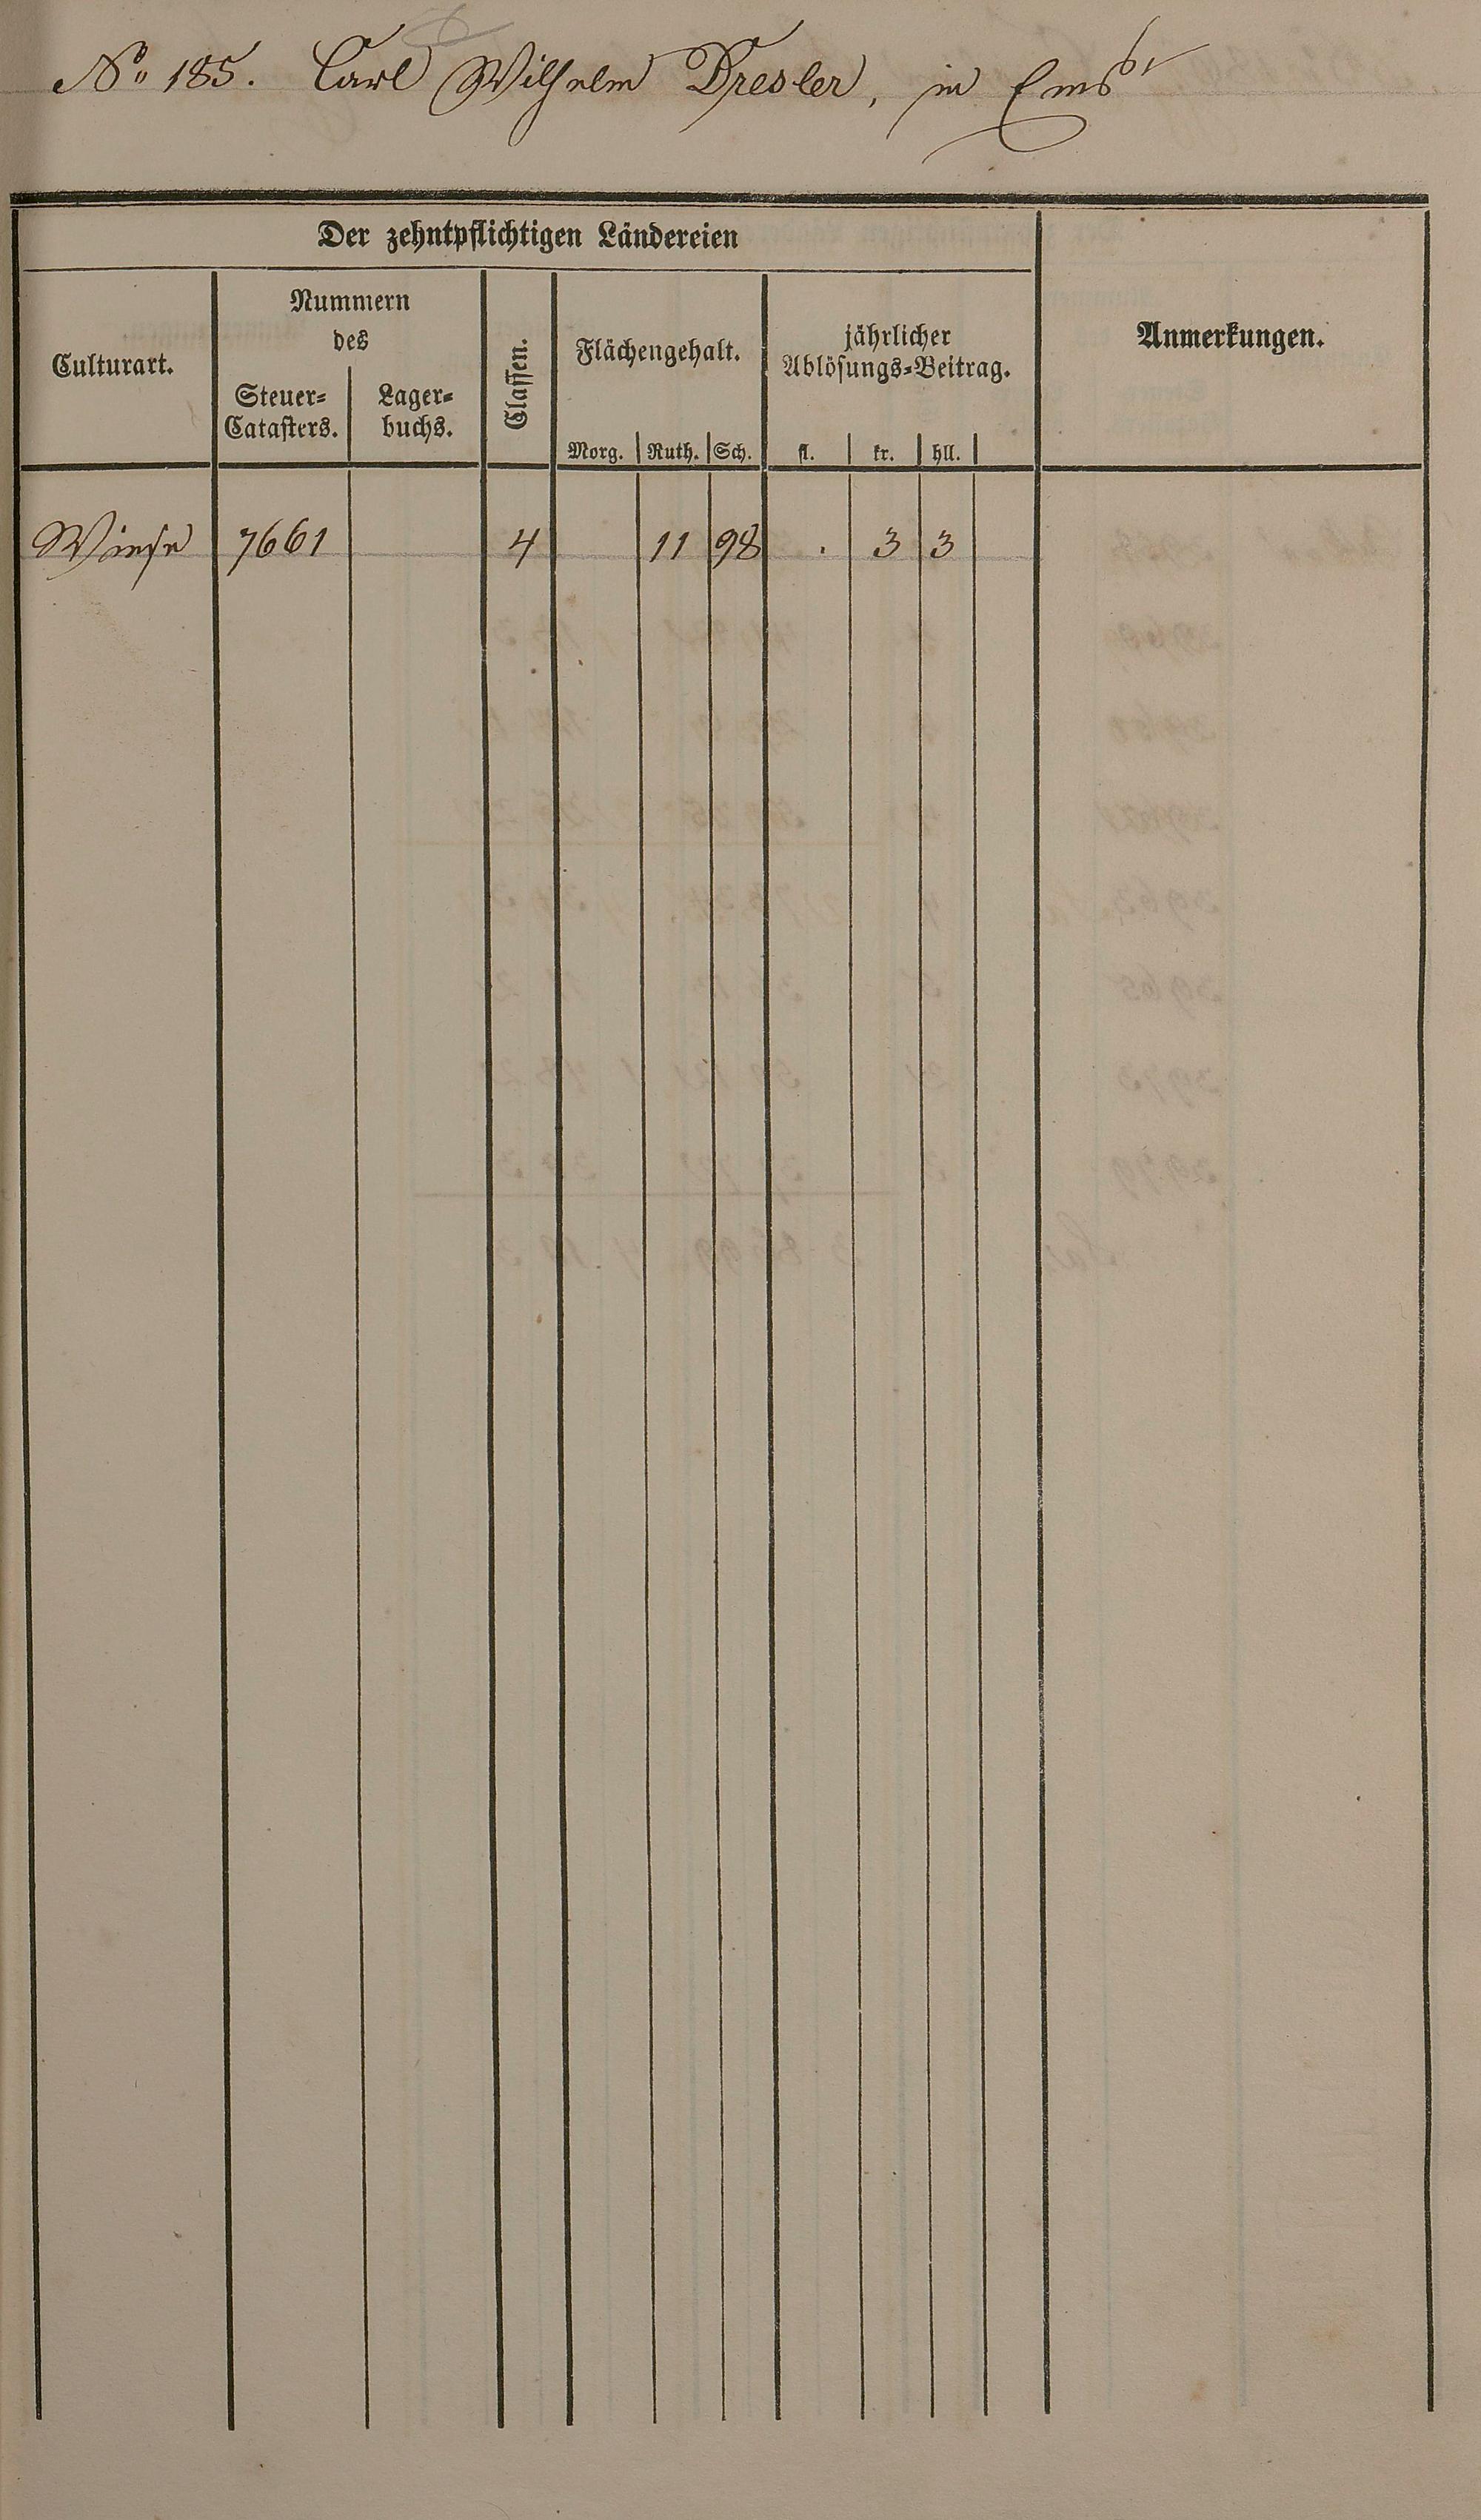 No 185. Carl Wilhelm Dresler, in Ems
Der zehntpflichtigen Ländereien
Culturart.
Nummern
des
Steuer=
Catasters.
Lager=
buchs.
Classen.
Flächengehalt.
Morg. Ruth. Sch.
jährlicher
Ablösungs=Beitrag.
fl. kr. hll.
Anmerkungen.
Wiese 7661 4 11 98 . 3 3